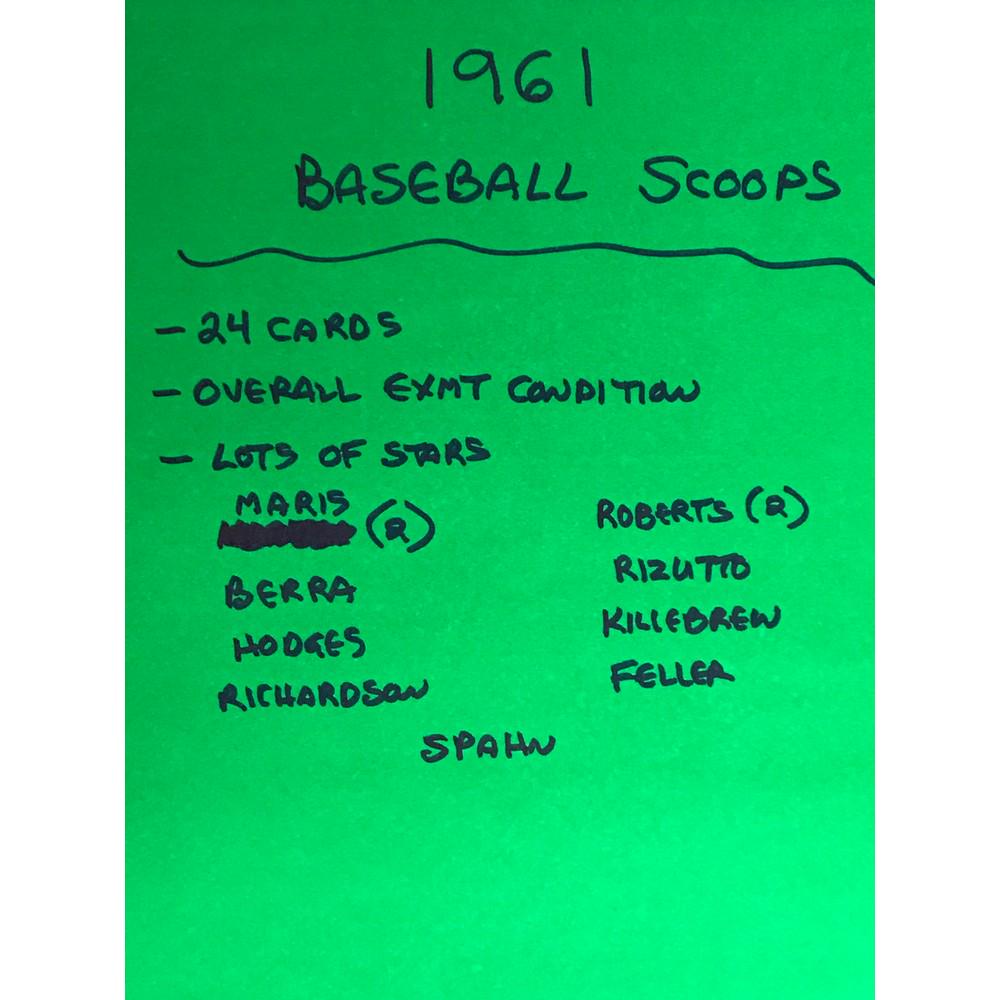 1961
BASEBALL SCOOPS
- 24 CARDS
- OVERALL EXMT CONDITION
- LOTS OF STARS
MARIS (2)
BERRA
HODGES
RICHARDSON
ROBERTS (2)
RIZUTTO
KILLEBREW
FELLER
SPAHN